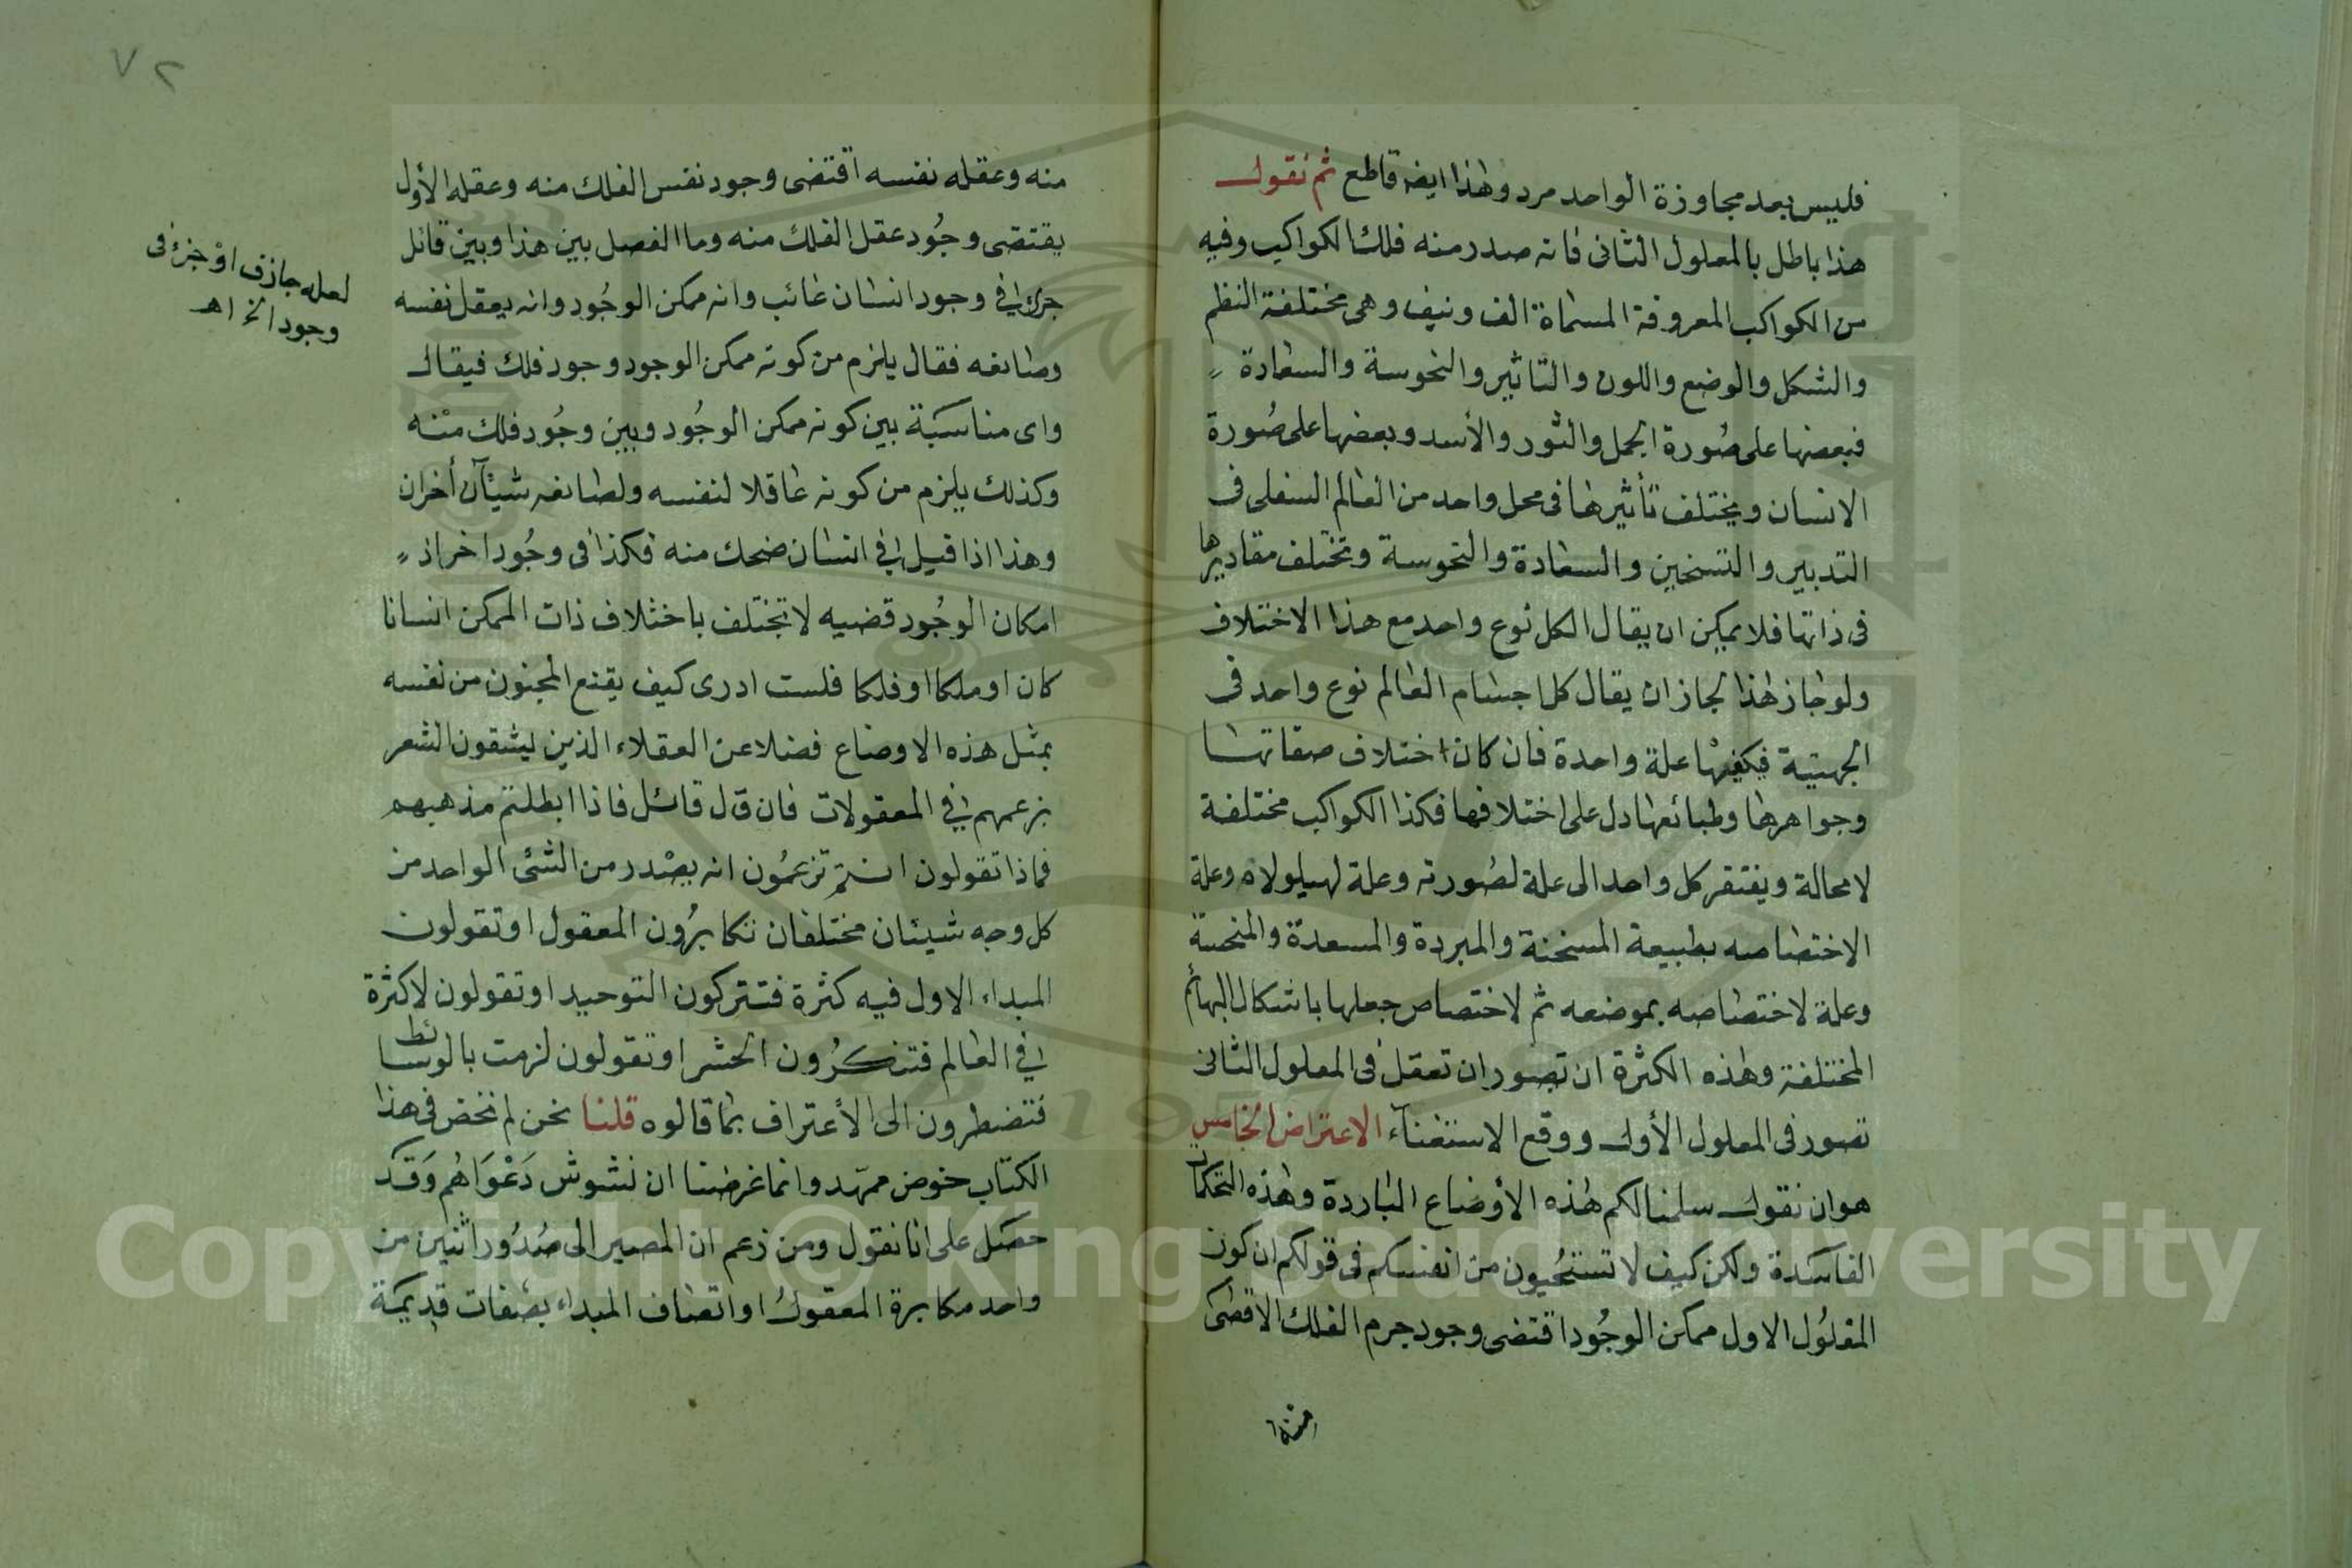 فليس بعد مجاوزة الواحد مرد وهذا ايضه قاطع ثم نقول
هذا باطل بالمعلول الثانى فانه صدر منه فلك الكواكب وفيه
من الكواكب المعروفة المسماة الف ونيف وهى مختلفة النظم
والشكل والوضع واللون والتاثير والنحوسة والسعادة
فبعضها على صُورة الحمل والثور والأسد وبعضها على صُورة
الانسان ويختلف تأثيرها فى محل واحد من العالم السفلى فى
التدبير والتسخين والسعادة والنحوسة وتختلف مقاديرها
فى ذاتها فلا يمكن ان يقال الكل نوع واحد مع هذا الاختلاف
ولو جاز هذا لجاز ان يقال كل اجسام العالم نوع واحد فى
الجهتية فيكفيها علة واحدة فان كان اختلاف صفاتها
وجواهرها وطبائعها دل على اختلافها فكذا الكواكب مختلفة
لا محالة ويفتقر كل واحد الى علة لصُورته وعلة لهيلولاه وعلة
الاختصاصه بطبيعة المسخنة والمبردة والمسعدة والمنحسة
وعلة لاختصاصه بموضعه ثم لاختصاص جعلها باشكال البهائم
المختلفة وهذه الكثرة ان تصور ان تعقل فى المعلول الثانى
تصور فى المعلول الأول ووقع الاستغنآء الاعتراض الخامس
هو ان نقول سلمنا لكم هذه الأوضاع الباردة وهذه التحكمات
الفاسدة ولكن كيف لا تستحيون من انفسكم فى قولكم ان كون
المعلُول الاول ممكن الوجُود اقتضى وجود جرم الفلك الاقصى
منه وعقله نفسه اقتضى وجود نفس الفلك منه وعقله الأول
يقتضى وجُود عقل الفلك منه وما الفصل بين هذا وبين قائل
فى وجود انسان غائب وانه ممكن الوجُود وانه يعقل نفسه
وصانعه فقال يلزم من كونه ممكن الوجود وجود فلك فيقال
واى مناسَبَة بين كونه ممكن الوجُود وبين وجُود فلك منْه
وكذلك يلزم من كونه عاقلا لنفسه ولصانعه شيئآن أخران
وهذا اذا قيل فى انسان ضحك منه فكذا فى وجُود اخر اذ
امكان الوجُود قضيه لا تختلف باختلاف ذات الممكن انسانا
كان او ملكا او فلكا فلست ادرى كيف يقنع المجنون من نفسه
بمثل هذه الاوضاع فضلا عن العقلاء الذين ليشقون الشعر
بزعمهم فى المعقولات فان قال قائل فاذا ابطلتم مذهبهم
فماذا تقولون انتم تزعمُون انه يصْدر من الشئى الواحد من
كل وجه شيئان مختلفان تكابرُون المعقول او تقولون
المبداء الاول فيه كثرة فتتركون التوحيد او تقولون لاكثرة
فى العالم فتنكرُون الحشر او تقولون لزمت بالوسائط
فتضطرون الى الأعتراف بما قالوه قلنا نحن لم نخض فى هذا
الكتاب خوض ممهّد وانما غرضنا ان نشوش دَعْوَاهُم وَقَد
حصَل على انا نقول ومن زعم ان المصير الى صُدُور اثنين من
واحد مكابرة المعقولُ او اتصاف المبداء بصفات قديمَة
لعله جازف او جزئ فى
وجود الخ اهـ
٧٢
Copyright © King Saud University
1957